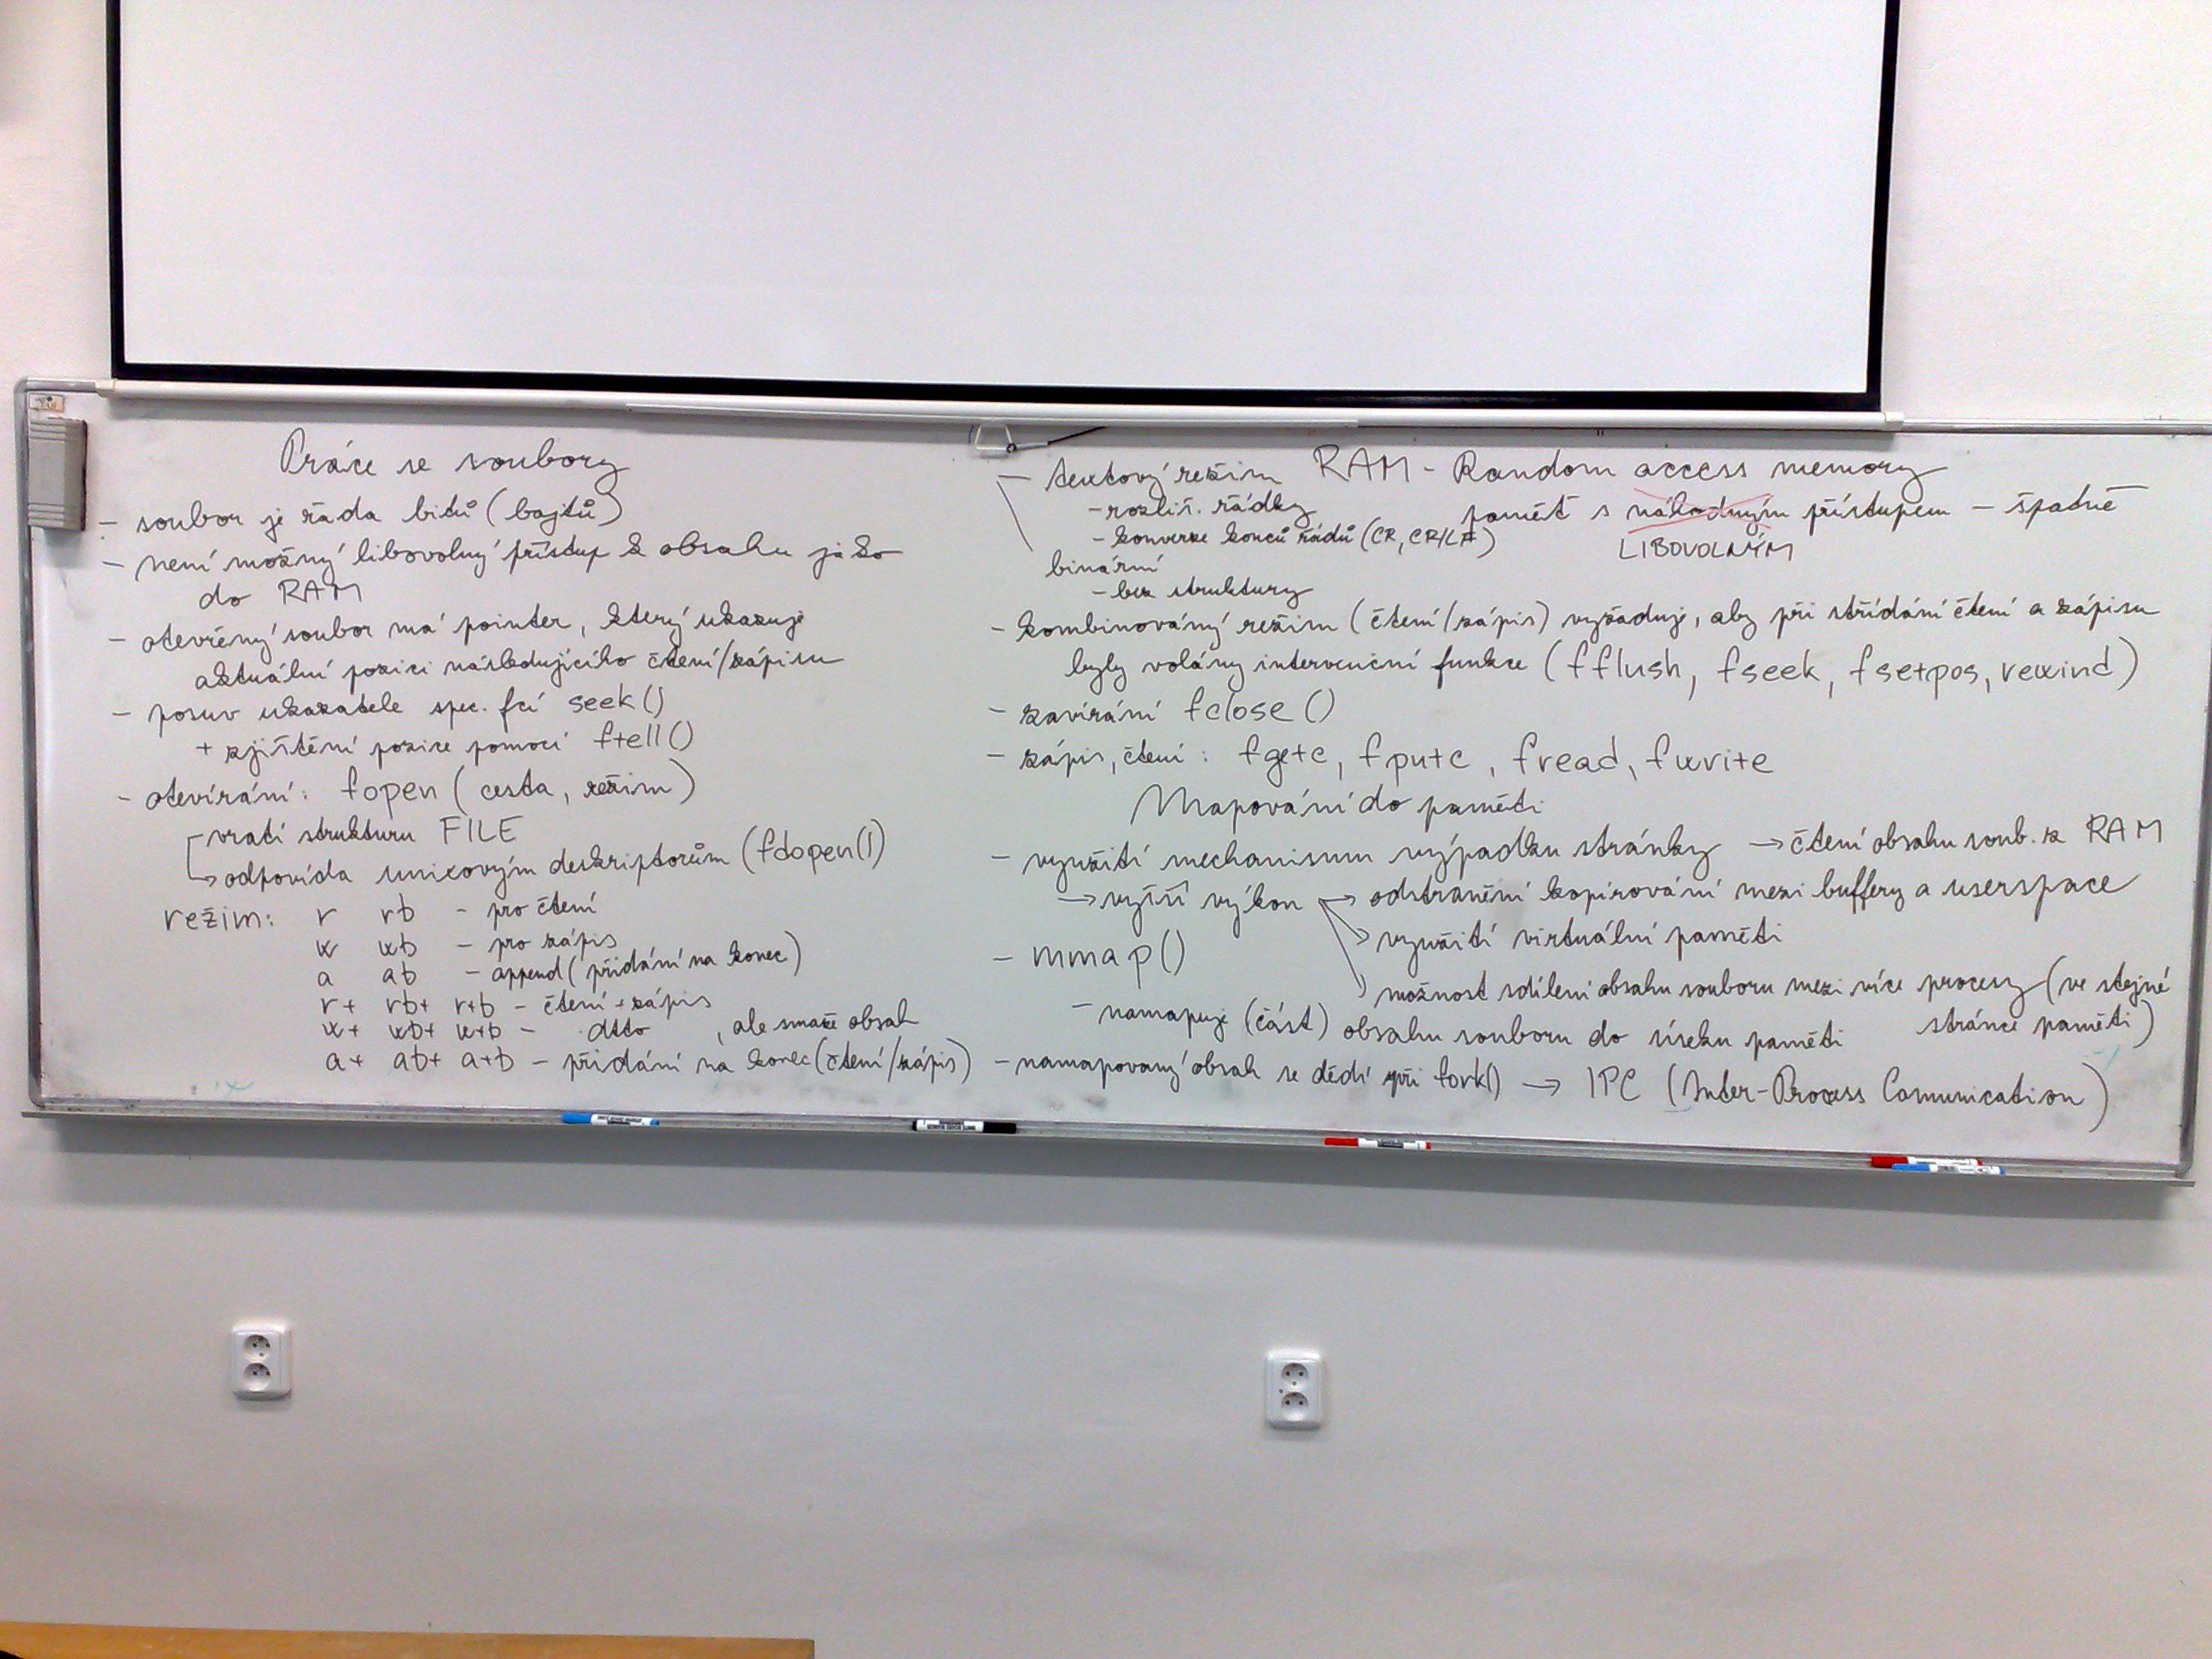 Práce se soubory
- soubor je řada bitů (bajtů)
- není možný libovolný přístup k obsahu jako
do RAM
- otevřený soubor má pointer, který ukazuje
aktuální pozici následujícího čtení/zápisu
- posuv ukazatele spec. fcí seek()
+ zjištění pozice pomocí ftell()
- otevírání: fopen (cesta, režim)
- vrátí strukturu FILE
→ odpovídá unixovým deskriptorům (fdopen())
režim: r rb - pro čtení
w wb - pro zápis
a ab - append (přidání na konec)
r+ rb+ r+b - čtení + zápis
w+ wb+ w+b - dtto, ale smaže obsah
a+ ab+ a+b - přidání na konec (čtení/zápis)
- textový režim
- rozliš. řádky
- konverze konců řádů (CR, CR/LF)
binární
- bez struktury
RAM - Random access memory
paměť s náhodným přístupem - špatně
LIBOVOLNÝM
- kombinováný režim (čtení/zápis) vyžaduje, aby při střídání čtení a zápisu
byly volány intervenční funkce (fflush, fseek, fsetpos, rewind)
- zavírání fclose ()
- zápis, čtení: fgetc, fputc, fread, fwrite
Mapování do paměti
- využití mechanismu výpadku stránky → čtení obsahu soub. z RAM
→ vyšší výkon → odstranění kopírování mezi buffery a userspace
využití virtuální paměti
možnost sdílení obsahu souboru mezi více procesy (ve stejné
stránce paměti)
- mmap()
- namapuje (část) obsahu souboru do úseku paměti
- namapovaný obsah se dědí při fork() → IPC (Inter-Process Comunication)